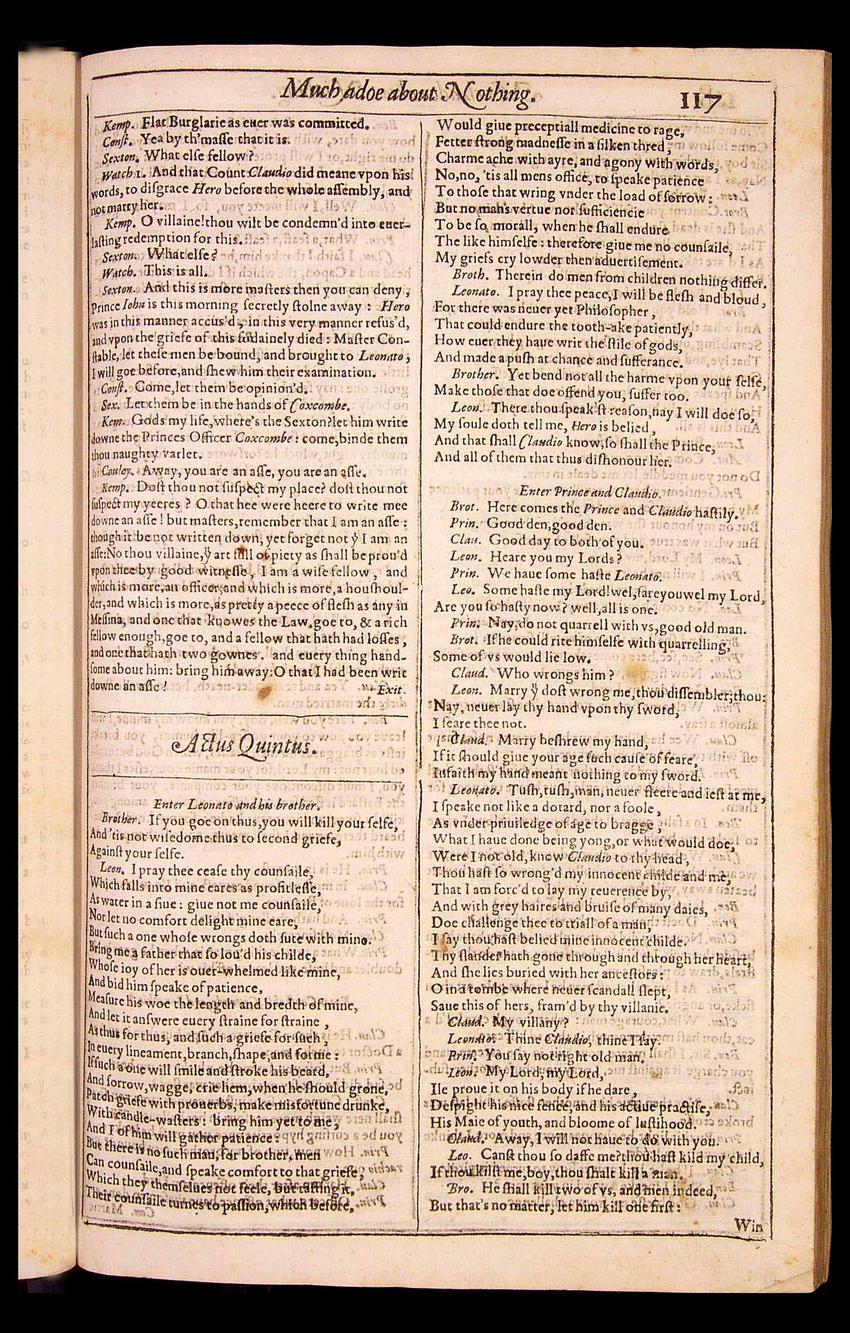 Much adoe about Nothing.
117
Kemp. Flat Burglarie as euer was committed.
Const. Yea by th'masse that it is.
Sexton. What else fellow?
Watch 1. And that Count Claudio did meane vpon his
words, to disgrace Hero before the whole assembly, and
not marry her.
Kemp. O villaine! thou wilt be condemn'd into euer-
lasting redemption for this.
Sexton. What else?
Watch. This is all.
Sexton. And this is more masters then you can deny,
Prince Iohn is this morning secretly stolne away : Hero
was in this manner accus'd, in this very manner refus'd,
and vpon the griefe of this sodainely died : Master Con-
stable, let these men be bound, and brought to Leonato,
I will goe before, and shew him their examination.
Const. Come, let them be opinion'd.
Sex. Let them be in the hands of Coxcombe.
Kem. Gods my life, where's the Sexton? let him write
downe the Princes Officer Coxcombe : come, binde them
thou naughty varlet.
Couley. Away, you are an asse, you are an asse.
Kemp. Dost thou not suspect my place? dost thou not
suspect my yeeres? O that hee were heere to write mee
downe an asse! but masters, remember that I am an asse :
though it be not written down, yet forget not yͭ I am an
asse: No thou villaine, yͧ art full of piety as shall be prou'd
vpon thee by good witnesse, I am a wise fellow, and
which is more, an officer, and which is more, a houshoul-
der, and which is more, as pretty a peece of flesh as any in
Messina, and one that knowes the Law, goe to, & a rich
fellow enough, goe to, and a fellow that hath had losses,
and one that hath two gownes, and euery thing hand-
some about him: bring him away: O that I had been writ
downe an asse!
Exit.
Actus Quintus.
Enter Leonato and his brother.
Brother. If you goe on thus, you will kill your selfe,
And 'tis not wisedome thus to second griefe,
Against your selfe.
Leon. I pray thee cease thy counsaile,
Which falls into mine eares as profitlesse,
As water in a siue : giue not me counsaile,
Nor let no comfort delight mine eare,
But such a one whose wrongs doth sute with mine.
Bring me a father that so lou'd his childe,
Whose ioy of her is ouer-whelmed like mine,
And bid him speake of patience,
Measure his woe the length and bredth of mine,
And let it answere euery straine for straine,
As thus for thus, and such a griefe for such,
In euery lineament, branch, shape, and forme :
If such a one will smile and stroke his beard,
And sorrow, wagge, crie hem, when he should grone,
Patch griefe with prouerbs, make misfortune drunke,
With candle-wasters : bring him yet to me,
And I of him will gather patience :
But there is no such man, for brother, men
Can counsaile, and speake comfort to that griefe,
Which they themselues not feele, but tasting it,
Their counsaile turnes to passion, which before,
Would giue preceptiall medicine to rage,
Fetter strong madnesse in a silken thred,
Charme ache with ayre, and agony with words,
No, no, 'tis all mens office, to speake patience
To those that wring vnder the load of sorrow :
But no mans vertue nor sufficiencie
To be so morall, when he shall endure
The like himselfe : therefore giue me no counsaile,
My griefs cry lowder then aduertisement.
Broth. Therein do men from children nothing differ.
Leonato. I pray thee peace, I will be flesh and bloud,
For there was neuer yet Philosopher,
That could endure the tooth-ake patiently,
How euer they haue writ the stile of gods,
And made a push at chance and sufferance.
Brother. Yet bend not all the harme vpon your selfe,
Make those that doe offend you, suffer too.
Leon. There thou speak'st reason, nay I will doe so,
My soule doth tell me, Hero is belied,
And that shall Claudio know, so shall the Prince,
And all of them that thus dishonour her.
Enter Prince and Claudio.
Brot. Here comes the Prince and Claudio hastily.
Prin. Good den, good den.
Clau. Good day to both of you.
Leon. Heare you my Lords?
Prin. We haue some haste Leonato.
Leo. Some haste my Lord! wel, fareyouwel my Lord,
Are you so hasty now? well, all is one.
Prin. Nay, do not quarrell with vs, good old man.
Brot. If he could rite himselfe with quarrelling,
Some of vs would lie low.
Claud. Who wrongs him?
Leon. Marry yͧ dost wrong me, thou dissembler, thou:
Nay, neuer lay thy hand vpon thy sword,
I feare thee not.
Claud. Marry beshrew my hand,
If it should giue your age such cause of feare,
Infaith my hand meant nothing to my sword.
Leonato. Tush, tush, man, neuer fleere and iest at me,
I speake not like a dotard, nor a foole,
As vnder priuiledge of age to bragge,
What I haue done being yong, or what would doe,
Were I not old, know Claudio to thy head,
Thou hast so wrong'd my innocent childe and me,
That I am forc'd to lay my reuerence by,
And with grey haires and bruise of many daies,
Doe challenge thee to triall of a man,
I say thou hast belied mine innocent childe.
Thy slander hath gone through and through her heart,
And she lies buried with her ancestors :
O in a tombe where neuer scandall slept,
Saue this of hers, fram'd by thy villanie.
Claud. My villany?
Leonato. Thine Claudio, thine I say.
Prin. You say not right old man.
Leon. My Lord, my Lord,
Ile proue it on his body if he dare,
Despight his nice fence, and his actiue practise,
His Maie of youth, and bloome of lustihood.
Claud. Away, I will not haue to do with you.
Leo. Canst thou so daffe me? thou hast kild my child,
If thou kilst me, boy, thou shalt kill a man.
Bro. He shall kill two of vs, and men indeed,
But that's no matter, let him kill one first :
Win